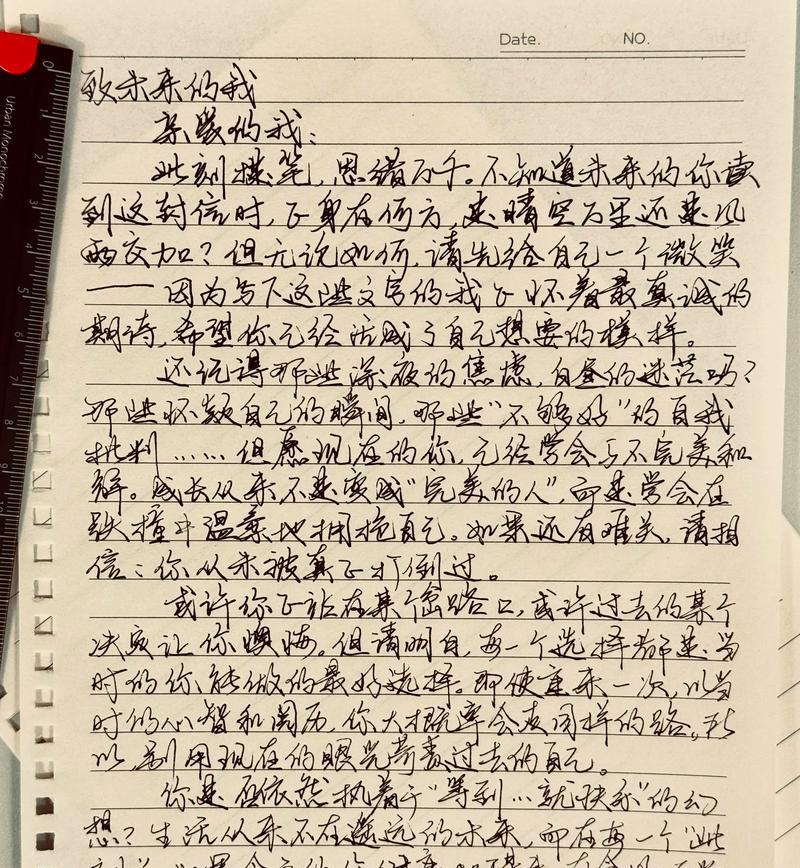 Date. NO.
致未来的我
亲爱的我:
此刻提笔,思绪万千。不知道未来的你读
到这封信时,正身在何方,是晴空万里还是风
雨交加?但无论如何,请先给自己一个微笑
——因为写下这些文字的我正怀着最真诚的
期待,希望你已经活成了自己想要的模样。
还记得那些深夜的焦虑,白昼的迷茫吗?
那些怀疑自己的瞬间,那些“不够好”的自我
批判……但愿现在的你,已经学会与不完美和
解。成长从来不是变成“完美的人”,而是学会在
跌撞中温柔地拥抱自己。如果还有难关,请相
信:你从未被真正打倒过。
或许你正站在某个岔路口,或许过去的某个
决定让你懊悔。但请明白,每一个选择都是当
时的你能做的最好选择。即使重来一次,以当
时的心智和阅历,你大概率会走同样的路。所
以别用现在的眼光苛责过去的自己。
你是否依然执着于“等到…就快乐”的幻
想?生活从来不在遥远的未来,而在每一个“此
Urban Monochrome
0
2
3
4
5
6
7
8
9